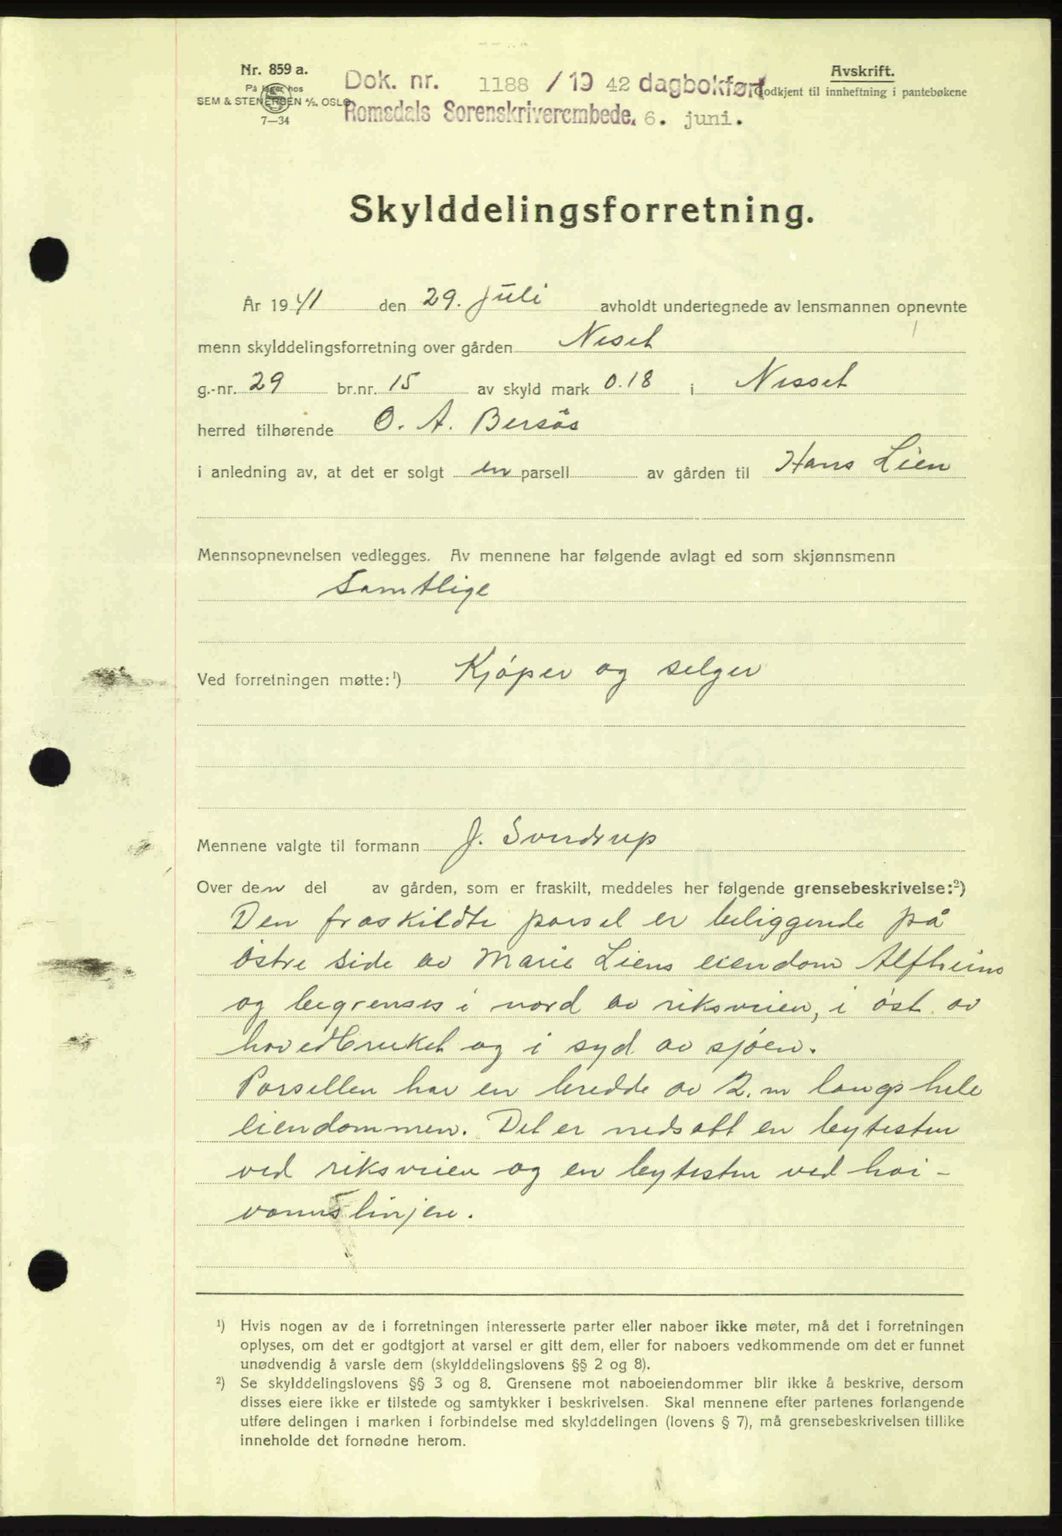 Nr. 859 a.
På lager hos
SEM & STENERSEN A/S, OSLO
7—34
Dok. nr. 1188 / 19 42 dagbokført
Romsdals Sorenskriverembede. 6. juni.
Avskrift.
Godkjent til innheftning i pantebøkene
Skylddelingsforretning.
År 1941 den 29. Juli avholdt undertegnede av lensmannen opnevnte
menn skylddelingsforretning over gården Neset
g.-nr. 29 br.nr. 15 av skyld mark 0.18 i Nesset
herred tilhørende O. A. Bersås
i anledning av, at det er solgt en parsell av gården til Hans Lien
Mennsopnevnelsen vedlegges. Av mennene har følgende avlagt ed som skjønnsmenn
Samtlige
Ved forretningen møtte:¹) Kjöper og selger
Mennene valgte til formann J. Sverdrup
Over den del av gården, som er fraskilt, meddeles her følgende grensebeskrivelse:²)
Den fraskildte parsel er beliggende på
östre side av Marie Liens eiendom Alfheim
og begrenses i nord av riksveien, i öst av
hovedbruket og i syd av sjöen.
Parsellen har en bredde av 2. m langs hele
eiendommen. Det er nedsatt en bytesten
ved riksveien og en bytesten ved höi-
vannslinjen.
¹) Hvis nogen av de i forretningen interesserte parter eller naboer ikke møter, må det i forretningen
oplyses, om det er godtgjort at varsel er gitt dem, eller for naboers vedkommende om det er funnet
unødvendig å varsle dem (skylddelingslovens §§ 2 og 8).
²) Se skylddelingslovens §§ 3 og 8. Grensene mot naboeiendommer blir ikke å beskrive, dersom
disses eiere ikke er tilstede og samtykker i beskrivelsen. Skal mennene efter partenes forlangende
utføre delingen i marken i forbindelse med skylddelingen (lovens § 7), må grensebeskrivelsen tillike
inneholde det fornødne herom.